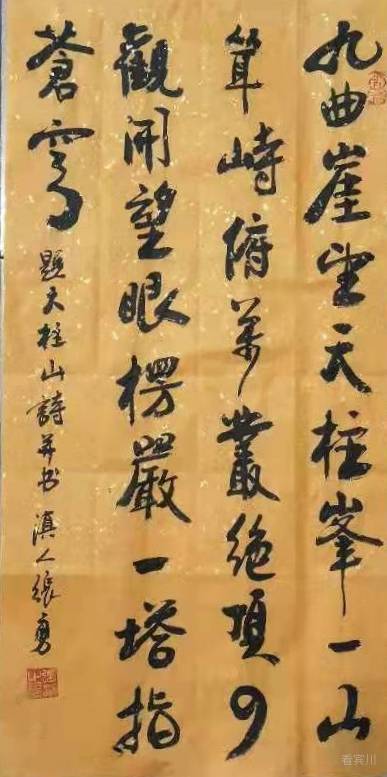 九曲崖天柱峯一山
耸峙俯萬叢絶頂四
觀開望眼楞嚴一塔指
蒼穹
題天柱山詩并书 滇人張勇
看宾川